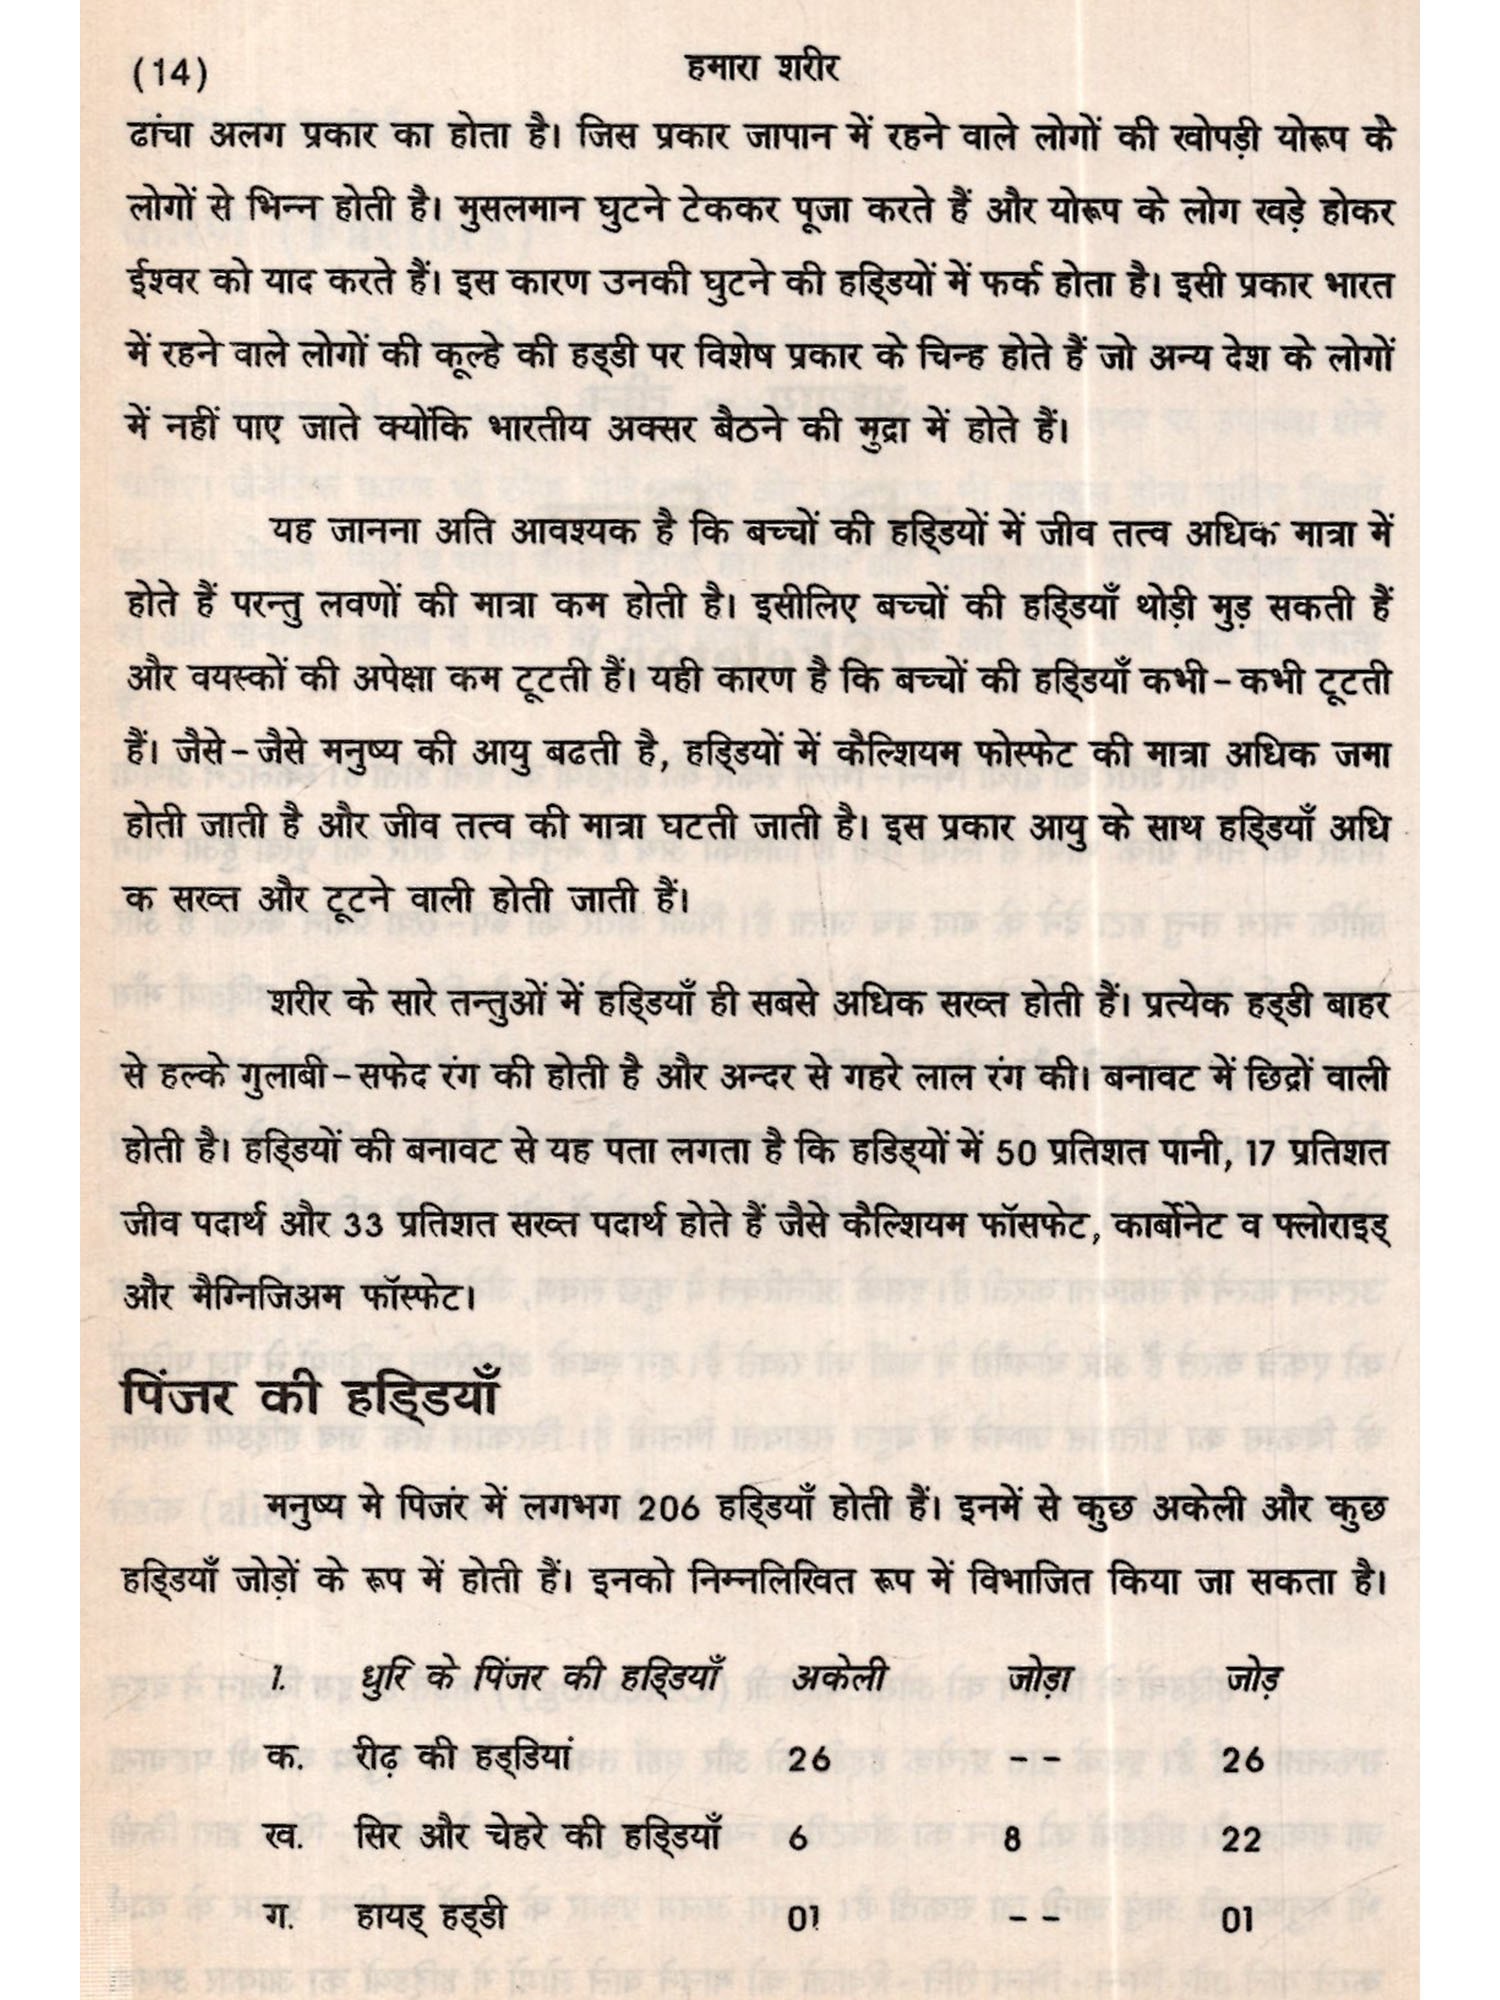 (14) हमारा शरीर
ढांचा अलग प्रकार का होता है। जिस प्रकार जापान में रहने वाले लोगों की खोपड़ी योरूप के
लोगों से भिन्न होती है। मुसलमान घुटने टेककर पूजा करते हैं और योरूप के लोग खड़े होकर
ईश्वर को याद करते हैं। इस कारण उनकी घुटने की हड्डियों में फर्क होता है। इसी प्रकार भारत
में रहने वाले लोगों की कूल्हे की हड्डी पर विशेष प्रकार के चिन्ह होते हैं जो अन्य देश के लोगों
में नहीं पाए जाते क्योंकि भारतीय अक्सर बैठने की मुद्रा में होते हैं।
यह जानना अति आवश्यक है कि बच्चों की हड्डियों में जीव तत्व अधिक मात्रा में
होते हैं परन्तु लवणों की मात्रा कम होती है। इसीलिए बच्चों की हड्डियाँ थोड़ी मुड़ सकती हैं
और वयस्कों की अपेक्षा कम टूटती हैं। यही कारण है कि बच्चों की हड्डियाँ कभी-कभी टूटती
हैं। जैसे-जैसे मनुष्य की आयु बढती है, हड्डियों में कैल्शियम फोस्फेट की मात्रा अधिक जमा
होती जाती है और जीव तत्व की मात्रा घटती जाती है। इस प्रकार आयु के साथ हड्डियाँ अधि
क सख्त और टूटने वाली होती जाती हैं।
शरीर के सारे तन्तुओं में हड्डियाँ ही सबसे अधिक सख्त होती हैं। प्रत्येक हड्डी बाहर
से हल्के गुलाबी-सफेद रंग की होती है और अन्दर से गहरे लाल रंग की। बनावट में छिद्रों वाली
होती है। हड्डियों की बनावट से यह पता लगता है कि हडिड्यों में 50 प्रतिशत पानी, 17 प्रतिशत
जीव पदार्थ और 33 प्रतिशत सख्त पदार्थ होते हैं जैसे कैल्शियम फॉसफेट, कार्बोनेट व फ्लोराइड्
और मैग्निजिअम फॉस्फेट।
पिंजर की हड्डियाँ
मनुष्य मे पिजंर में लगभग 206 हड्डियाँ होती हैं। इनमें से कुछ अकेली और कुछ
हड्डियाँ जोड़ों के रूप में होती हैं। इनको निम्नलिखित रूप में विभाजित किया जा सकता है।
1. धुरि के पिंजर की हड्डियाँ अकेली जोड़ा जोड़
क. रीढ़ की हड्डियां 26 -- 26
ख. सिर और चेहरे की हड्डियाँ 6 8 22
ग. हायड् हड्डी 01 -- 01